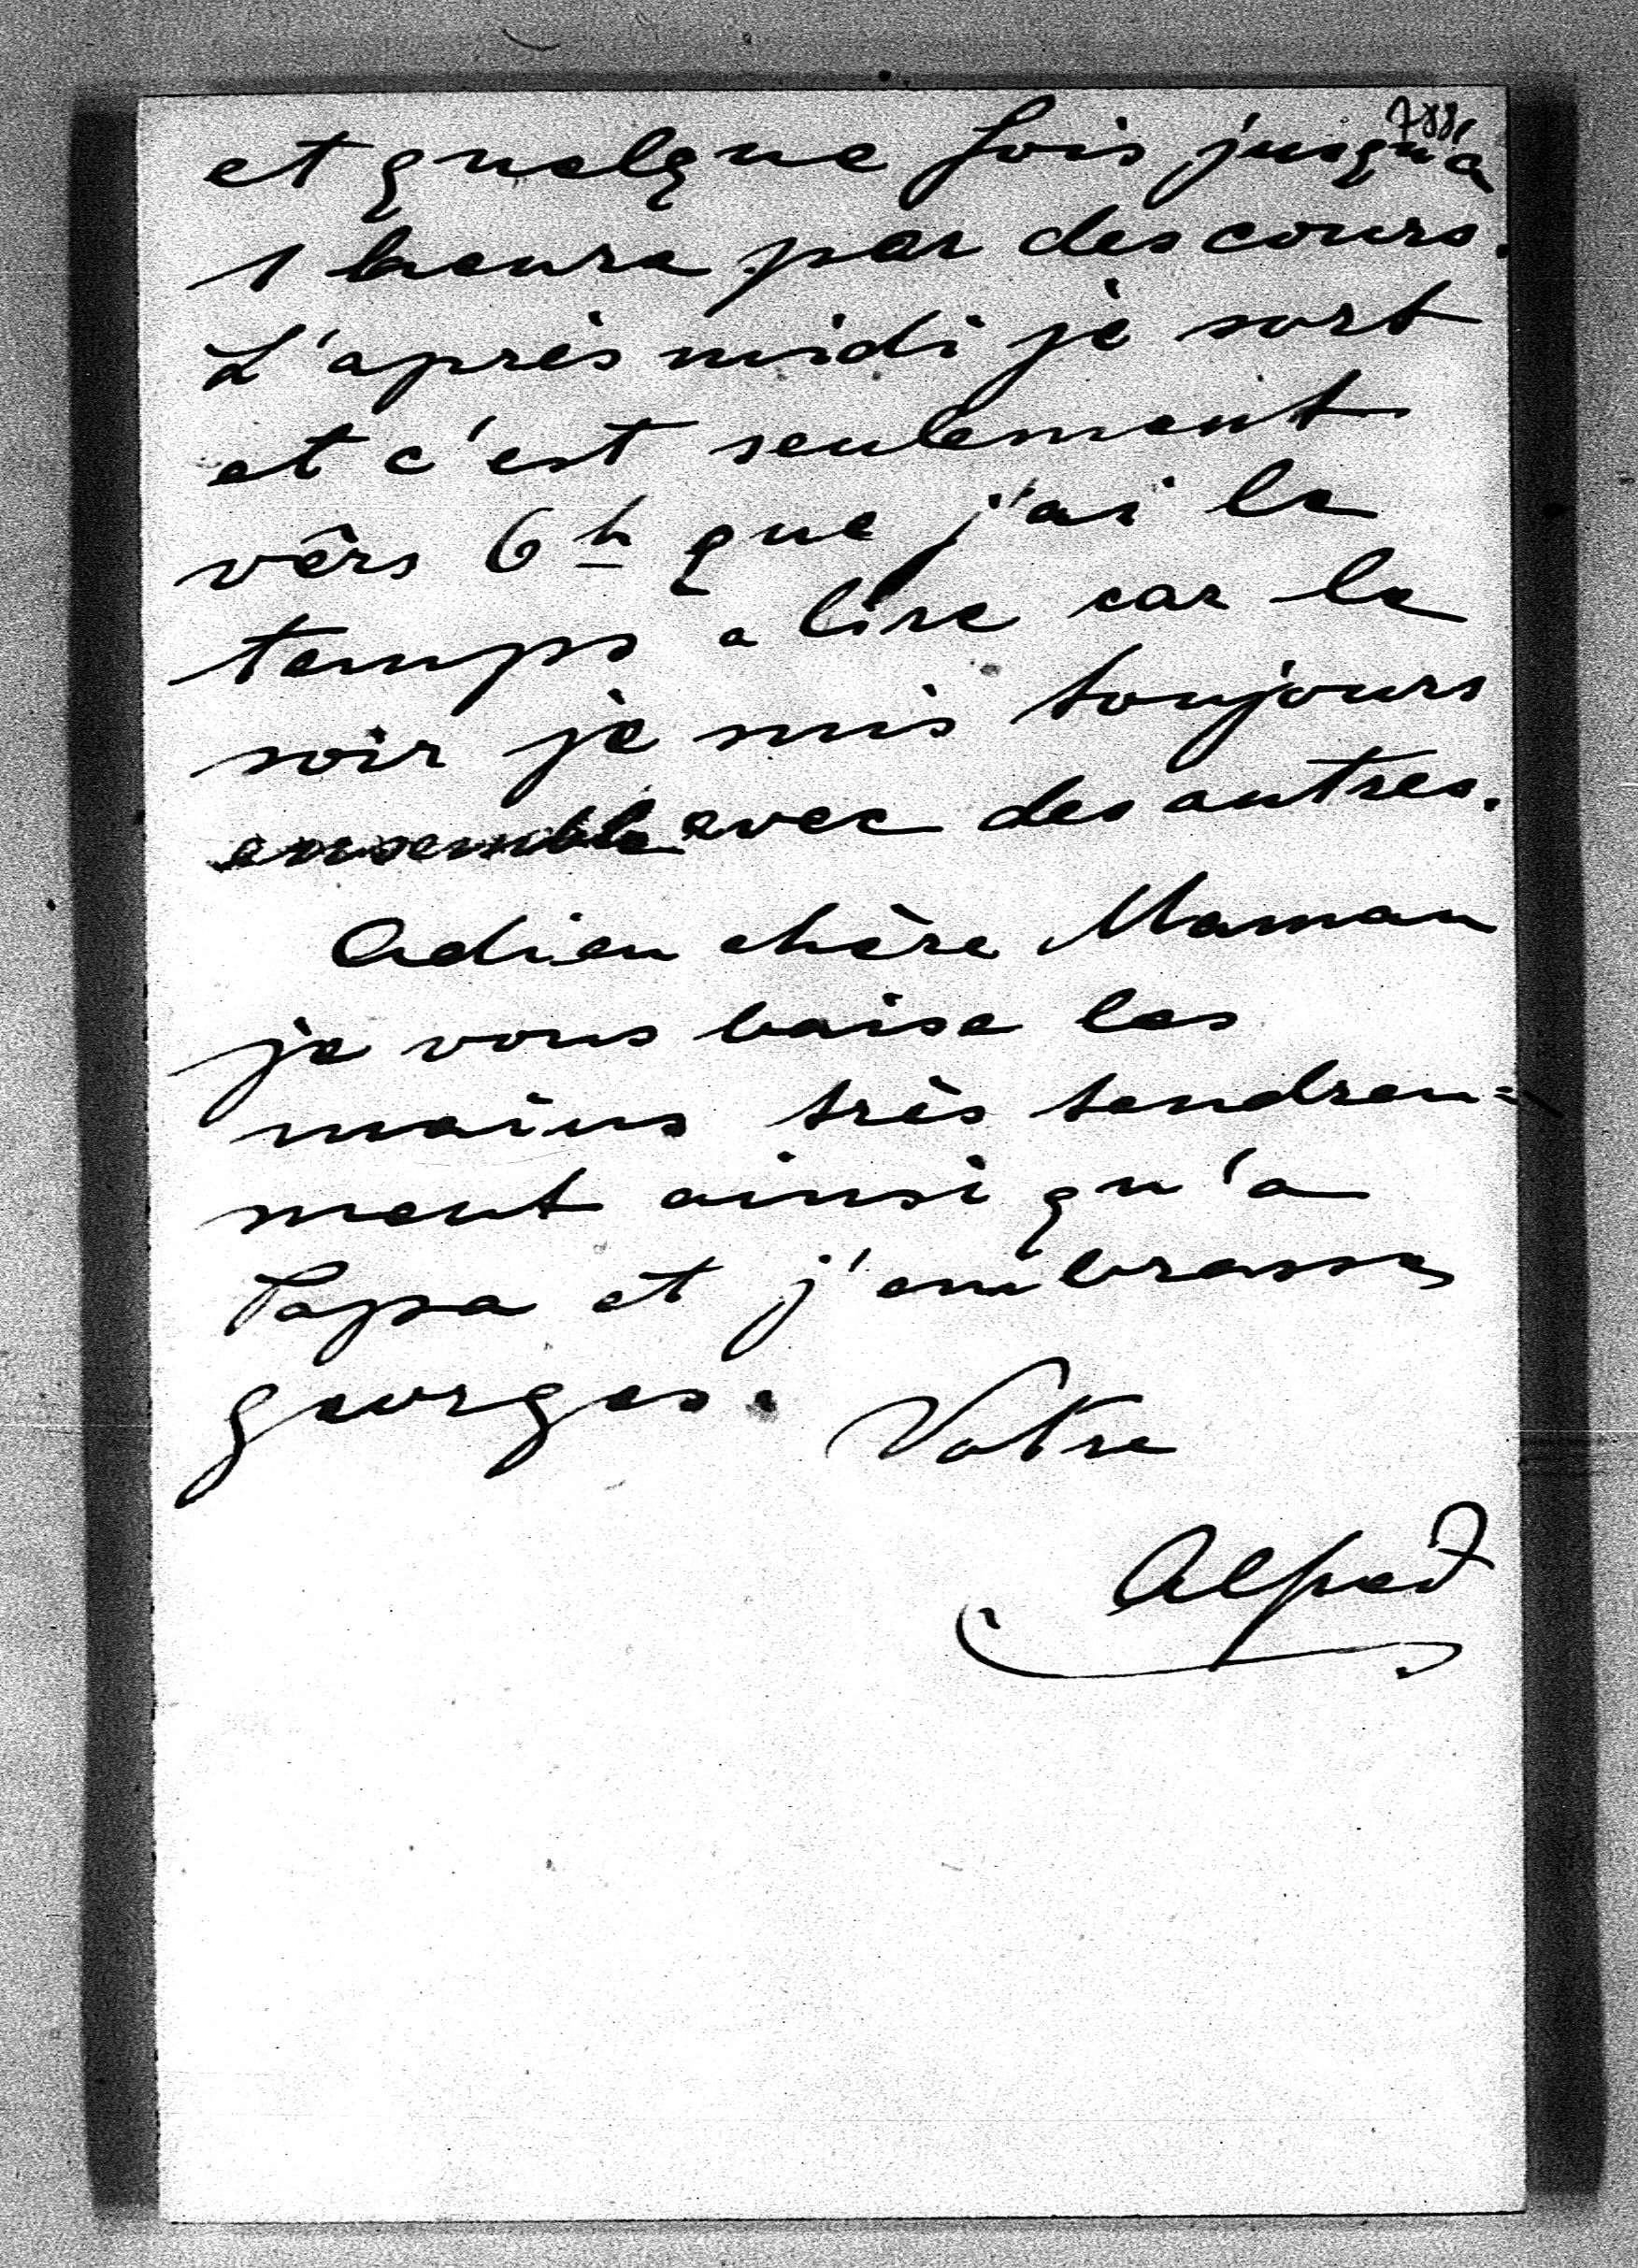 788
et quelque fois jusqu'a
1 heure par des cours.
L'après midi je sort
et c'est seulement
vêrs 6h que j'ai le
temps a lire car le
soir je suis toujours
ensemble avec des autres.
Adieu chère Maman
je vous baise les
mains très tendren=
ment ainsi qu'a
Papa et j'embrasse
Georges. Votre
Alfred